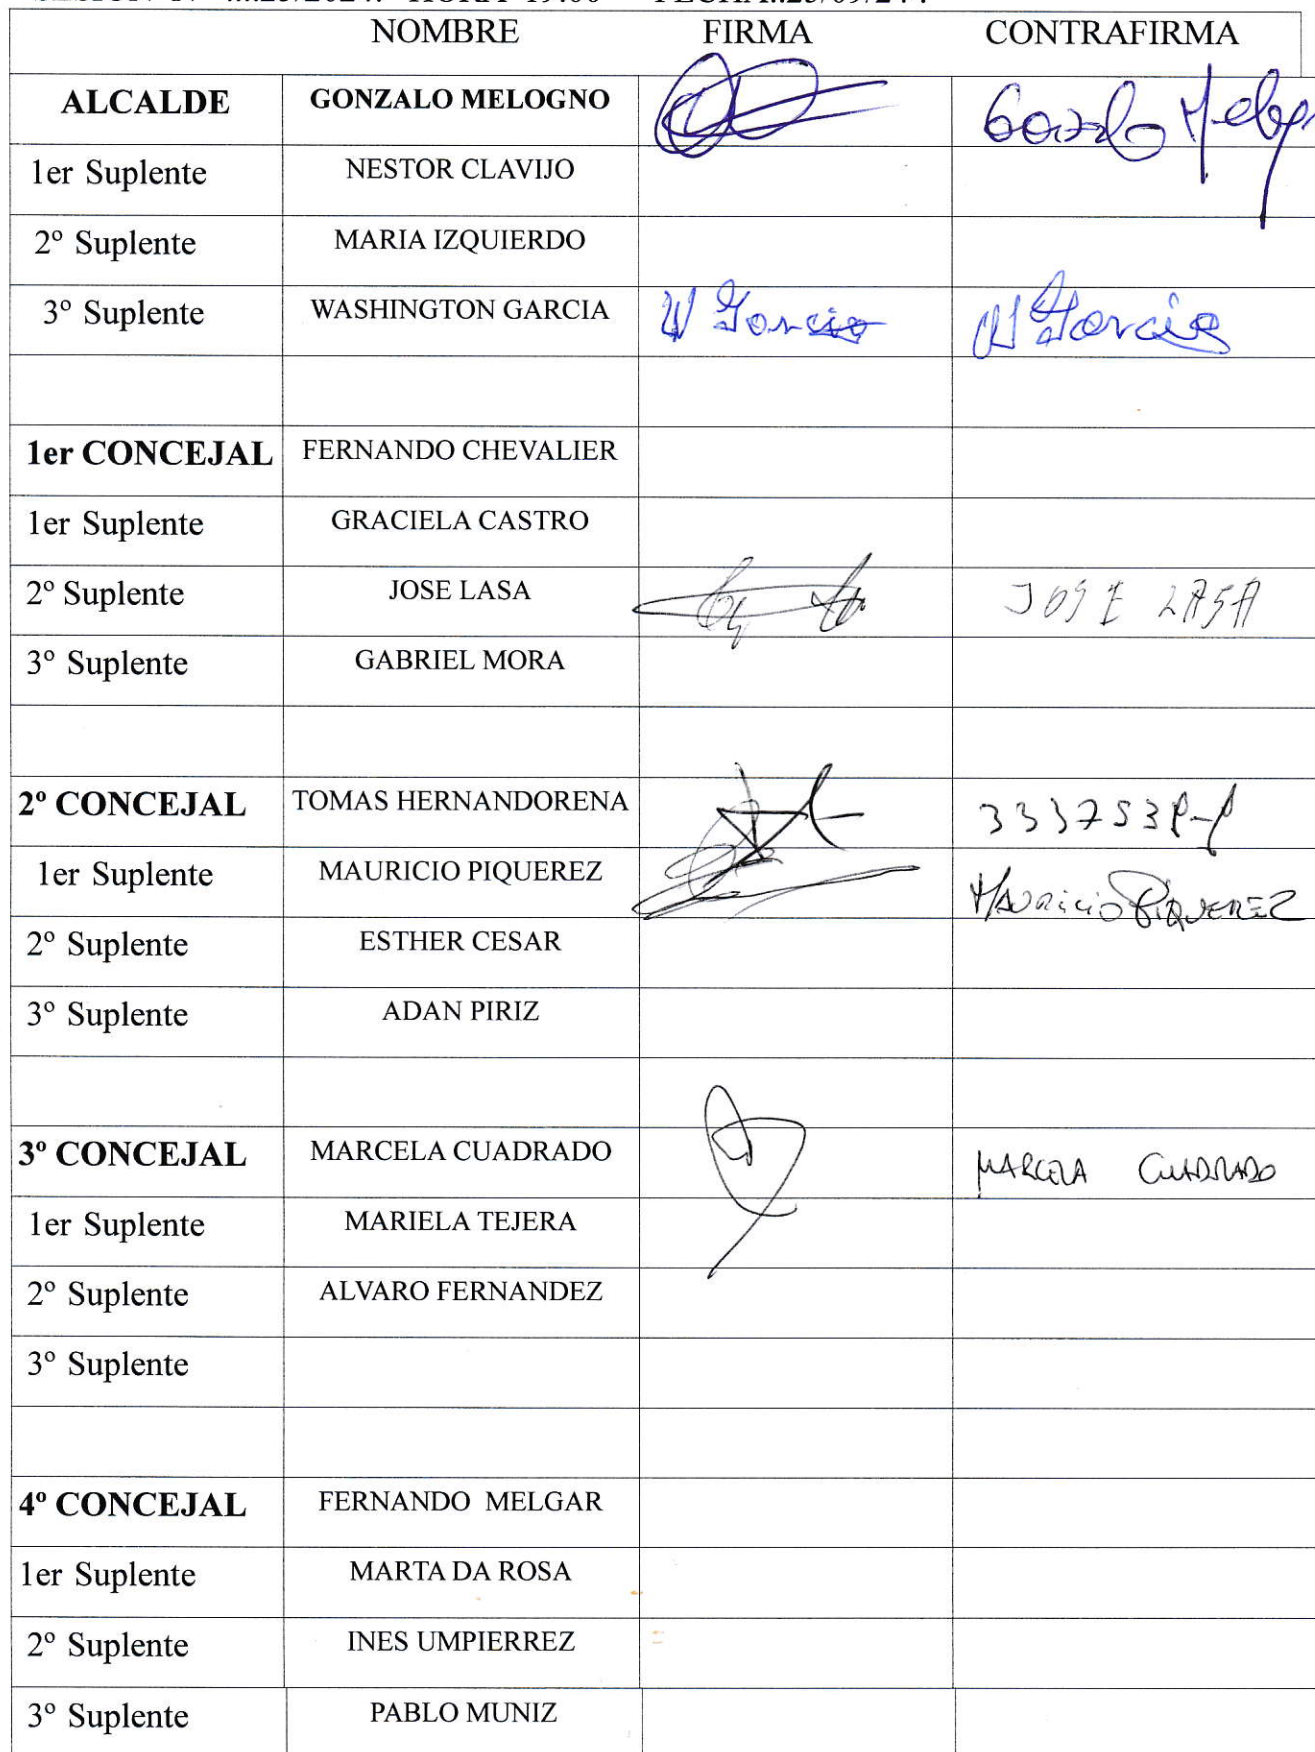 NOMBRE FIRMA CONTRAFIRMA
ALCALDE GONZALO MELOGNO Gonzalo
1er Suplente NESTOR CLAVIJO
2º Suplente MARIA IZQUIERDO
3º Suplente WASHINGTON GARCIA W Garcia W Garcia
1er CONCEJAL FERNANDO CHEVALIER
1er Suplente GRACIELA CASTRO
2º Suplente JOSE LASA JOSE LASA
3º Suplente GABRIEL MORA
2º CONCEJAL TOMAS HERNANDORENA
1er Suplente MAURICIO PIQUEREZ MAURICIO PIQUEREZ
2º Suplente ESTHER CESAR
3º Suplente ADAN PIRIZ
3º CONCEJAL MARCELA CUADRADO MARCELA CUADRADO
1er Suplente MARIELA TEJERA
2º Suplente ALVARO FERNANDEZ
3º Suplente
4º CONCEJAL FERNANDO MELGAR
1er Suplente MARTA DA ROSA
2º Suplente INES UMPIERREZ
3º Suplente PABLO MUNIZ